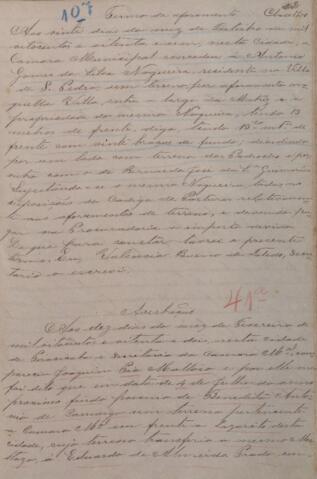 107 Termo de aforamento
Aos vinte dias do mez de Outubro de mil
oitocentos e oitenta e um, nesta cidade, a
Camara Municipal concedeu a Antonio
Gomes da Silva Nogueira, residente na Villa
de S. Pedro, um terreno por aforamento na
quella Villa, entre o largo da Matriz e a
propriedade do mesmo Nogueira, tendo 13
de frente, digo, tendo 13
frente com vinte braças de fundo, dividindo
por um lado com terreno
com o de Bernardo José
sujeitando-se o mesmo Nogueira todas as
disposições do Codigo de Posturas relativamen
te aos aforamentos de terreno, e devendo pa
gar na Procuradoria o importe
Do que para constar lavrei o presente
termo. Eu, Bueno de Toledo, Secre
tario o escrevi.
41a
Averbação
Aos dez dias do mez de Fevereiro de
mil oitocentos e oitenta e dois, nesta cidade
de e Secretaria da Camara M.al com
pareceu Joaquim e por elle me
foi dito que em data de 4 de Julho do anno
proximo findo de Benedicto Anto
nio de Camargo um terreno pertencente
a Camara M.al em frente a Lazarêto desta
cidade, cujo terreno transferia a mesma
a Eduardo de Almeida Prado, em